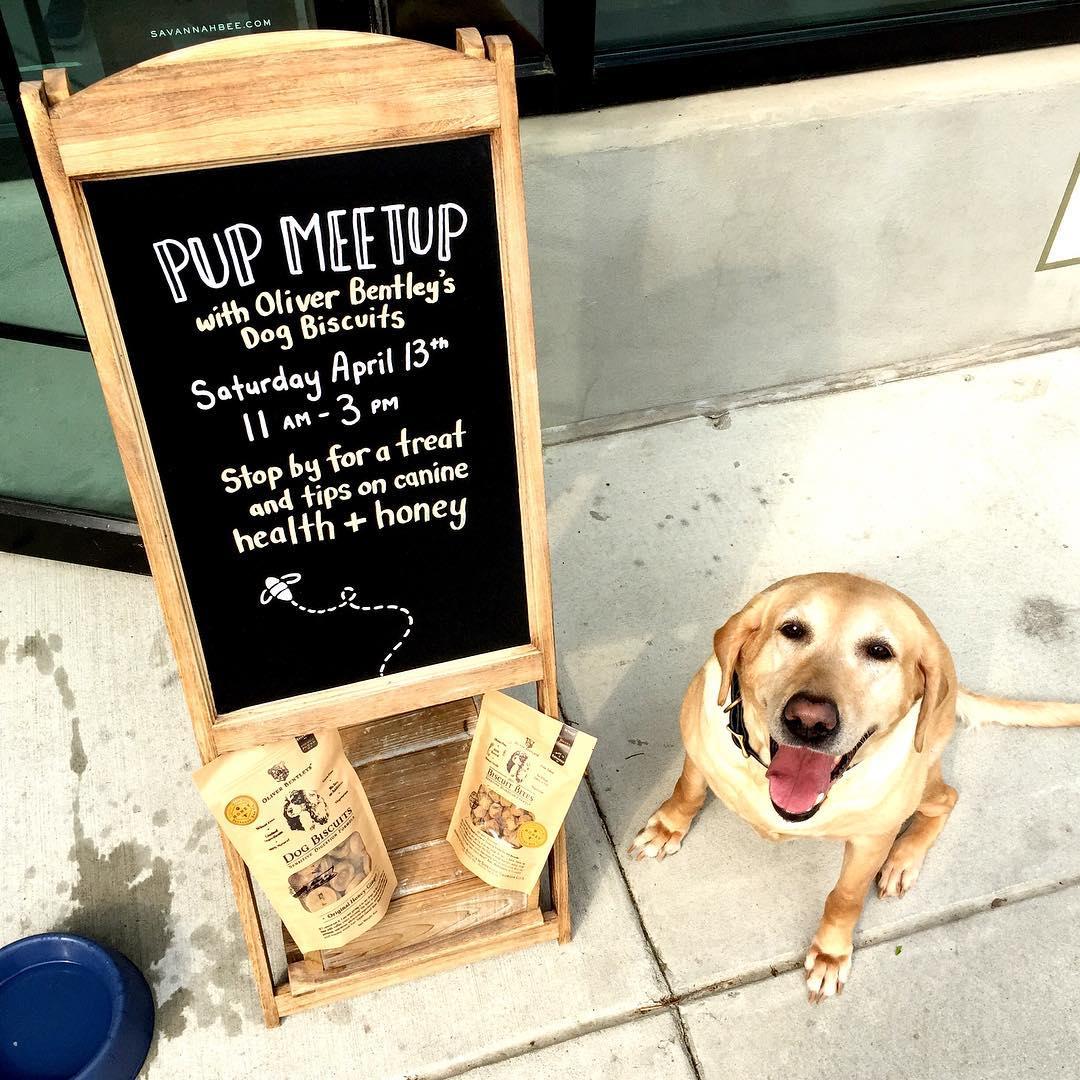 SAVANNAHBEE.COM
PUP MEETUP
with Oliver Bentley's
Dog Biscuits
Saturday April 13th
11 AM - 3 PM
Stop by for a treat
and tips on canine
health + honey
OLIVER BENTLEYS'
DOG BISCUITS
SENSITIVE DIGESTION FORMULA
Original Honey
BISCUIT BITES